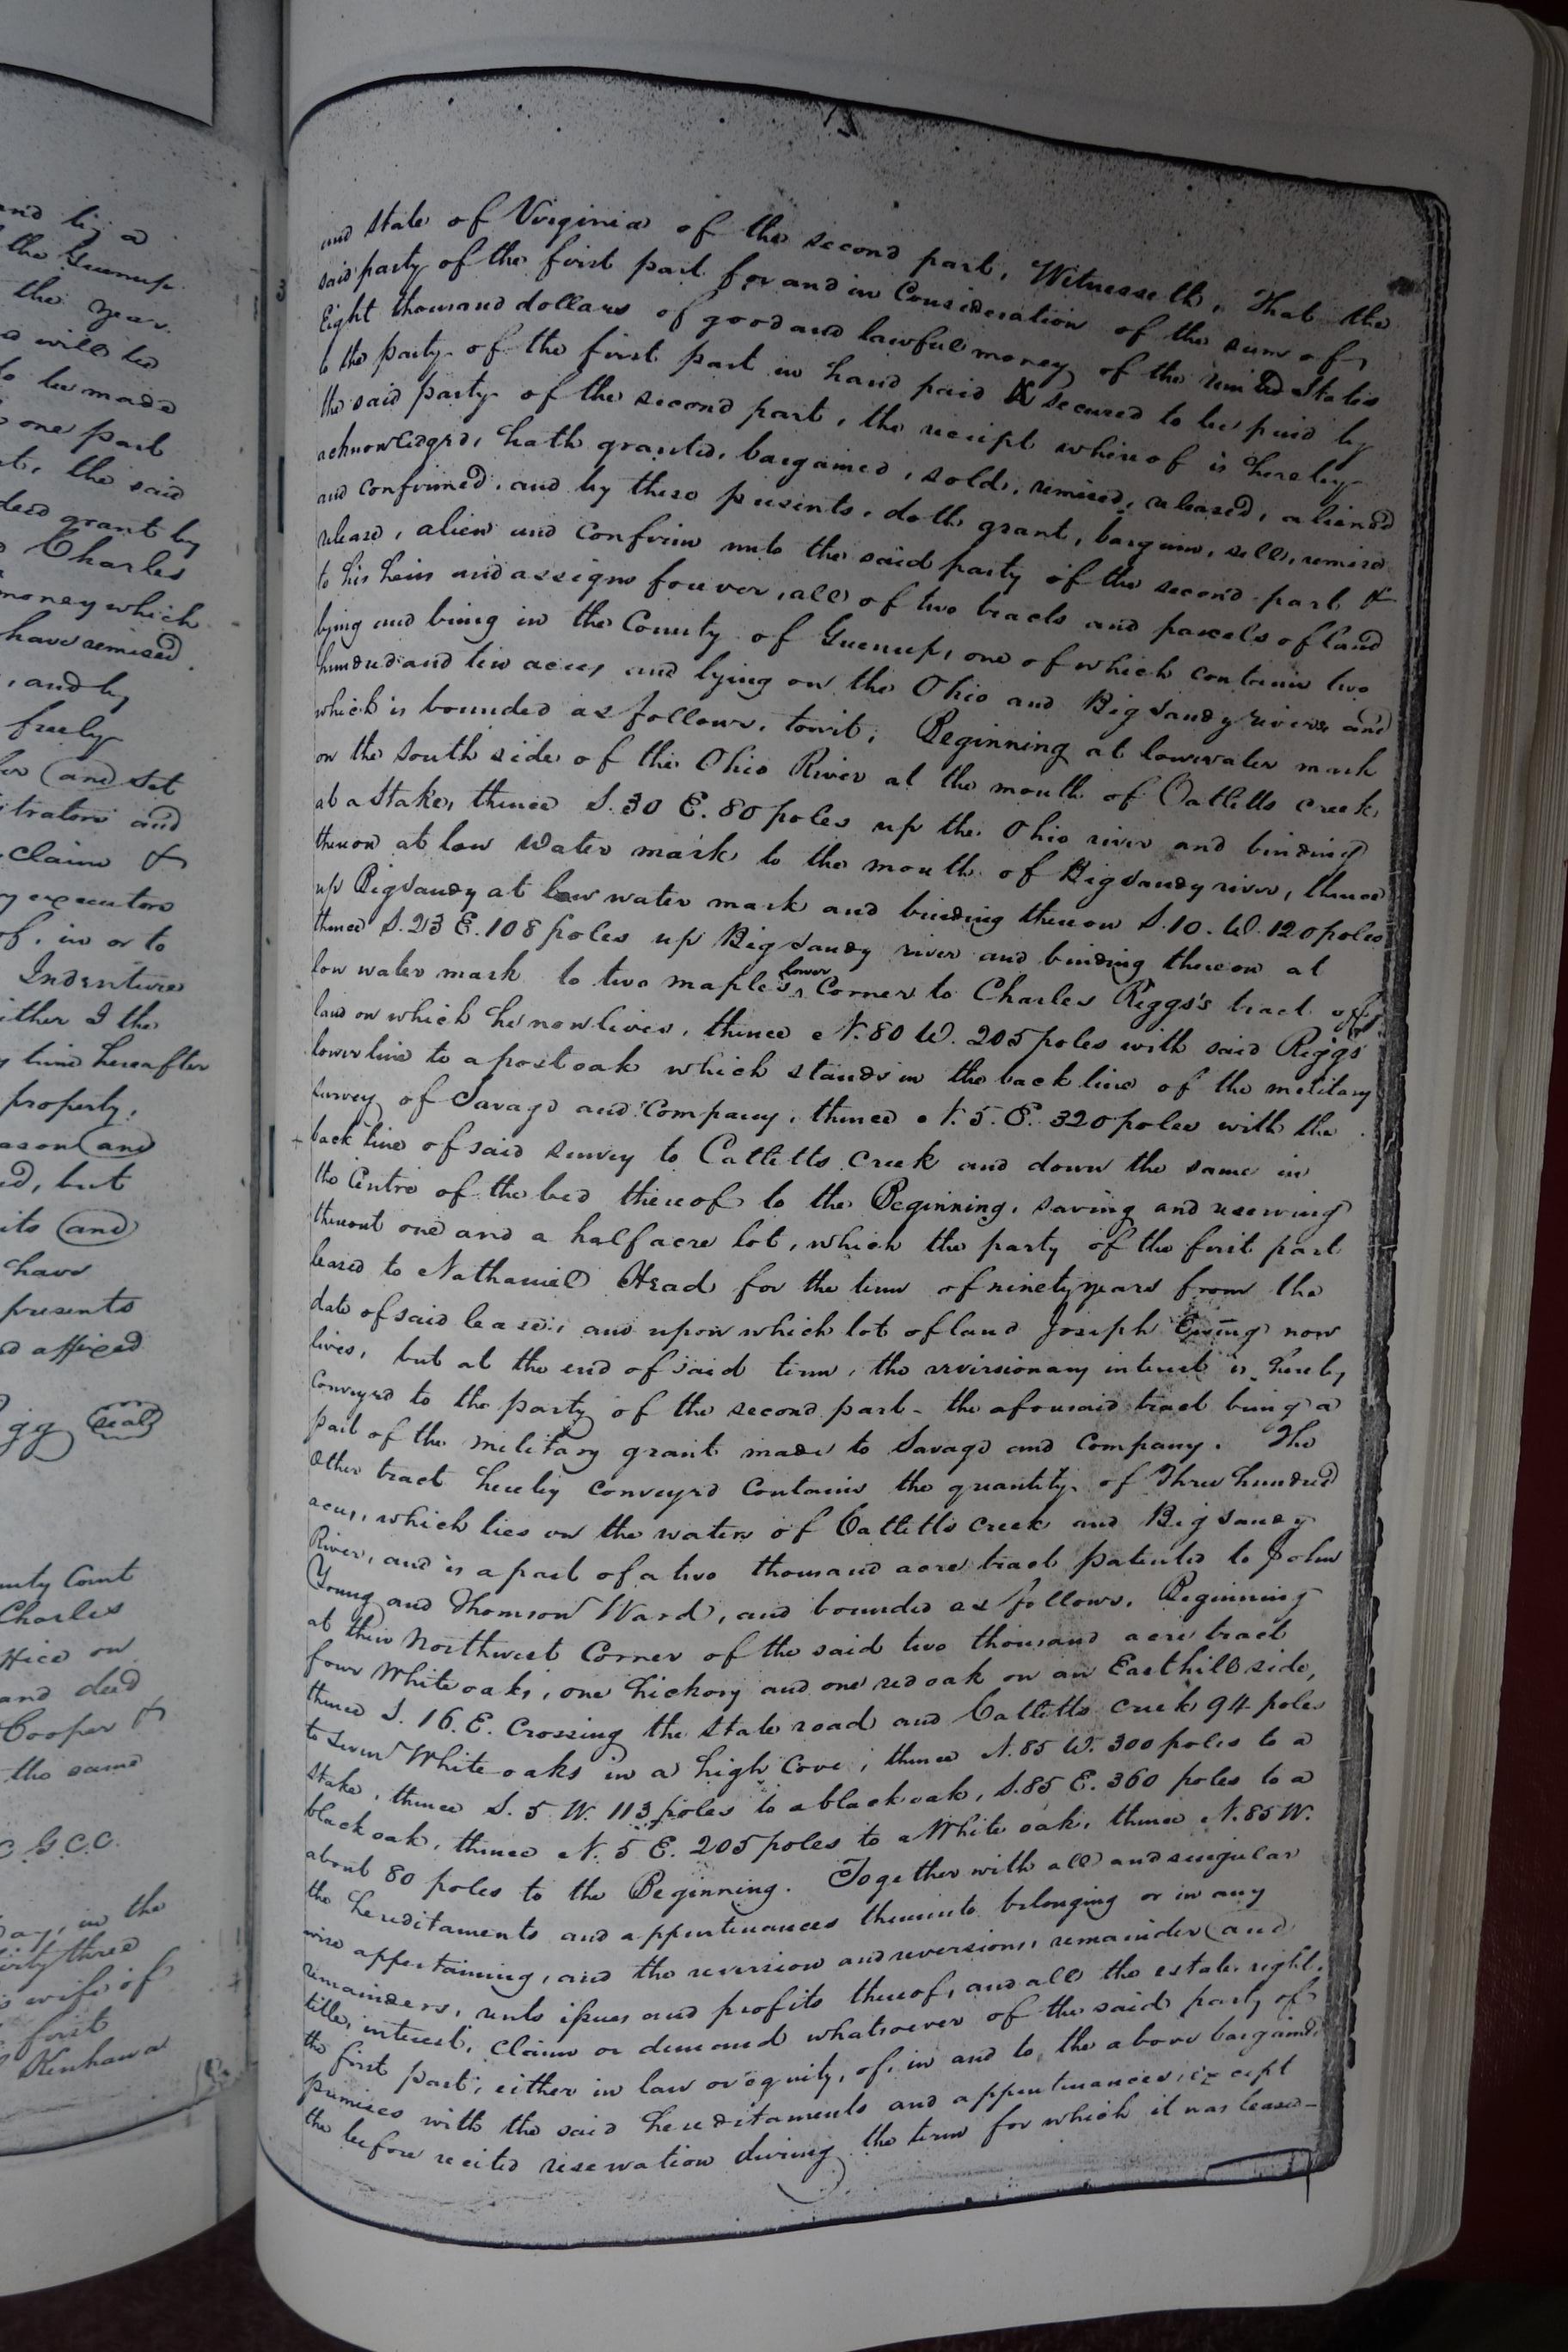 and lig a
the Greenup
the year
d will led
to be made
one part
nt, the said
deed grant by
Charles
money which
have remised
, and by
freely
for (and) Set
itrators and
claim &
my executors
of, in or to
Indenture
ither I the
y time hereafter
property,
eason (and)
ed, but
its (and)
have
presents
nd affixed
gg (seal)
unty Court
Charles
ffice on
and deed
Cooper &
the same
C.G.C.C.
Day, in the
irty three
wife of
first
Kenhawa
and State of Virginia of the second part, Witnesseth, That the
said party of the first part for and in Consideration of the sum of
Eight thousand dollars of good and lawful money of the United States
to the party of the first part in hand paid & secured to be paid by
the said party of the second part, the receipt whereof is hereby
acknowledged, hath granted, bargained, sold, remised, released, aliened
and confirmed, and by these presents, doth grant, bargain, sell, remise
release, alien and Confirm unto the said party of the second part &
to his heirs and assigns forever, all of two tracts and parcels of land
lying and being in the County of Greenup, one of which contains two
hundred and ten acres, and lying on the Ohio and Big Sandy rivers and
which is bounded as follows, towit; Beginning at low water mark
on the South side of the Ohio River at the mouth of Catletts creek,
at a Stake, thence S. 30 E. 80 poles up the Ohio river and binding
thereon at low Water mark to the mouth of Big Sandy river, thence
up Big Sandy at low water mark and binding thereon S. 10. W. 120 poles
thence S. 23 E. 108 poles up Big Sandy river and binding thereon at
low water mark to two maples, lower Corner to Charles Riggs's tract of
land on which he now lives, thence N. 80 W. 205 poles with said Riggs'
lower line to a post oak which stands in the back line of the military
survey of Savage and Company, thence N. 5. E. 320 poles with the
back line of said survey to Catletts Creek and down the same in
the Centre of the bed thereof to the Beginning, saving and reserving
thereout one and a half acre lot, which the party of the first part
leased to Nathaniel Head for the term of ninety years from the
date of said lease, and upon which lot of land Joseph Ewing now
lives, but at the end of said term, the reversionary interest is hereby
conveyed to the party of the second part - the aforesaid tract being a
part of the military grant made to Savage and Company. The
Other tract hereby conveyed Contains the quantity of Three hundred
acres, which lies on the waters of Catletts creek and Big Sandy
River, and is a part of a two thousand acre tract patented to John
Young and Thomson Ward, and bounded as follows. Beginning
at their Northwest Corner of the said two thousand acre tract
four White oaks, one hickory and one red oak on an East hill side,
thence S. 16. E. Crossing the State road and Catletts creek 94 poles
to Seven White oaks in a high cove; thence N. 85 W. 300 poles to a
Stake, thence S. 5 W. 113 poles to a black oak, S. 85 E. 360 poles to a
black oak, thence N. 5 E. 205 poles to a White oak, thence N. 85 W.
about 80 poles to the Beginning. Together with all and singular
the hereditaments and appurtenances thereunto belonging or in any
wise appertaining, and the reversion and reversions, remainder (and
remainders, rents issues and profits thereof, and all the estate, right,
title, interest, Claim or demand whatsoever of the said party of
the first part, either in law or equity, of, in and to, the above bargained
premises with the said hereditaments and appurtenances; except
the before recited reservation during the term for which it was leased-